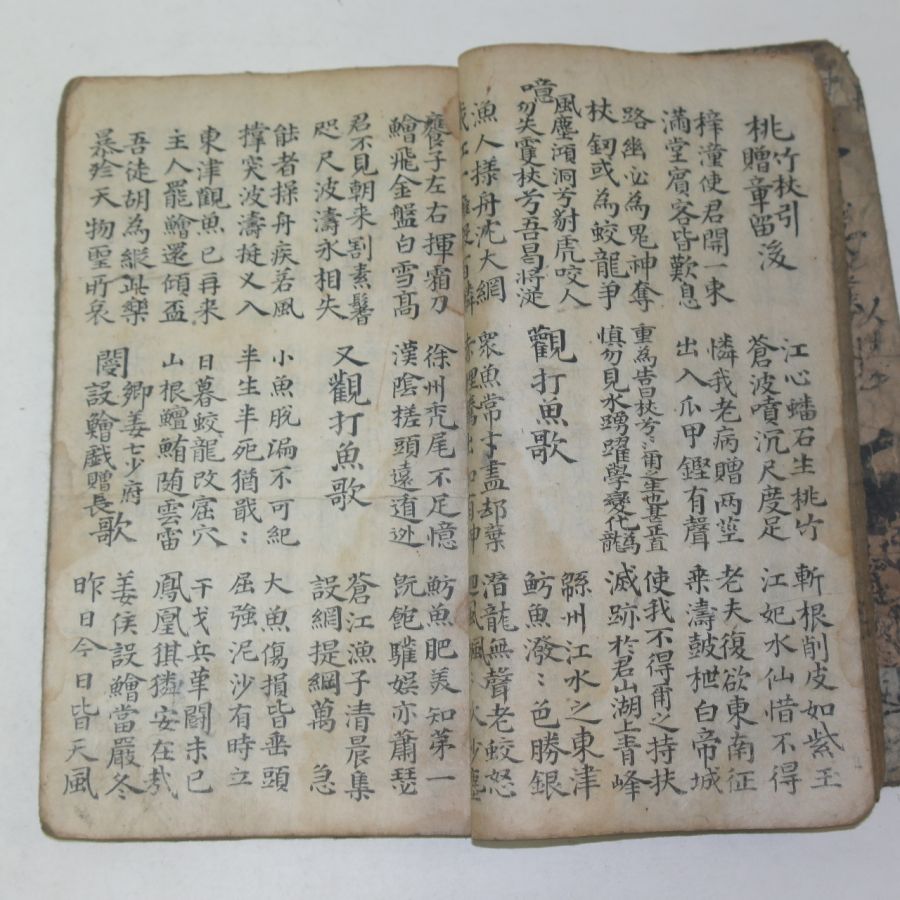 桃竹杖引
贈章留後
江心蟠石生桃竹
蒼波噴沉尺度足
斬根削皮如紫玉
江妃水仙惜不得
梓潼使君開一束
滿堂賓客皆歎息
憐我老病贈两莖
出入爪甲鏗有聲
老夫復欲東南征
乗濤鼓枻白帝城
路幽必為鬼神奪
杖釰或為蛟龍爭
重為告曰杖兮〻爾之生也甚正直
慎勿見水踴躍學變化為龍
使我不得甭之持扶
滅跡於君山湖上青峰
噫
風塵澒洞兮豺虎咬人
忽失雙杖兮吾曷將從
觀打魚歌
緜州江水之東津
魴魚潑〻色勝銀
漁人㨾舟沈大網
眾魚常才盡却棄
潛龍無聲老蛟怒
饔子左右揮霜刀
鱠飛金盤白雪髙
徐州禿尾不足憶
漢陰槎頭遠遁逃
魴魚肥美知第一
既飽驩娛亦蕭瑟
君不見朝来割素鬐
咫尺波濤永相失
又觀打魚歌
蒼江漁子清晨集
設網提綱萬 急
能者操舟疾若風
撑突波濤挺叉入
小魚脫漏不可紀
半生半死猶戢〻
大魚傷損皆垂頭
屈強泥沙有時立
東津觀魚已再来
主人罷鱠還傾盃
日暮蛟龍改窟穴
山根鱣鮪随雲雷
干戈兵革鬪未已
鳳凰猉獜安在㢤
吾徒胡為縱此樂
暴殄天物聖所哀
閿卿姜七少府
設鱠戲贈長歌
姜侯設鱠當嚴冬
昨日今日皆天風